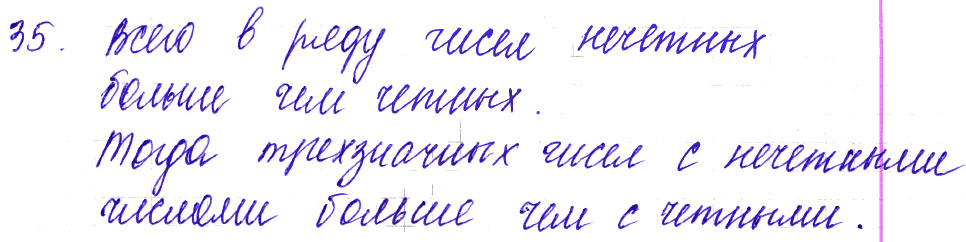 35. Всего в ряду чисел нечетных
больше чем четных.
Тогда трехзначных чисел с нечетными
числами больше чем с четными.